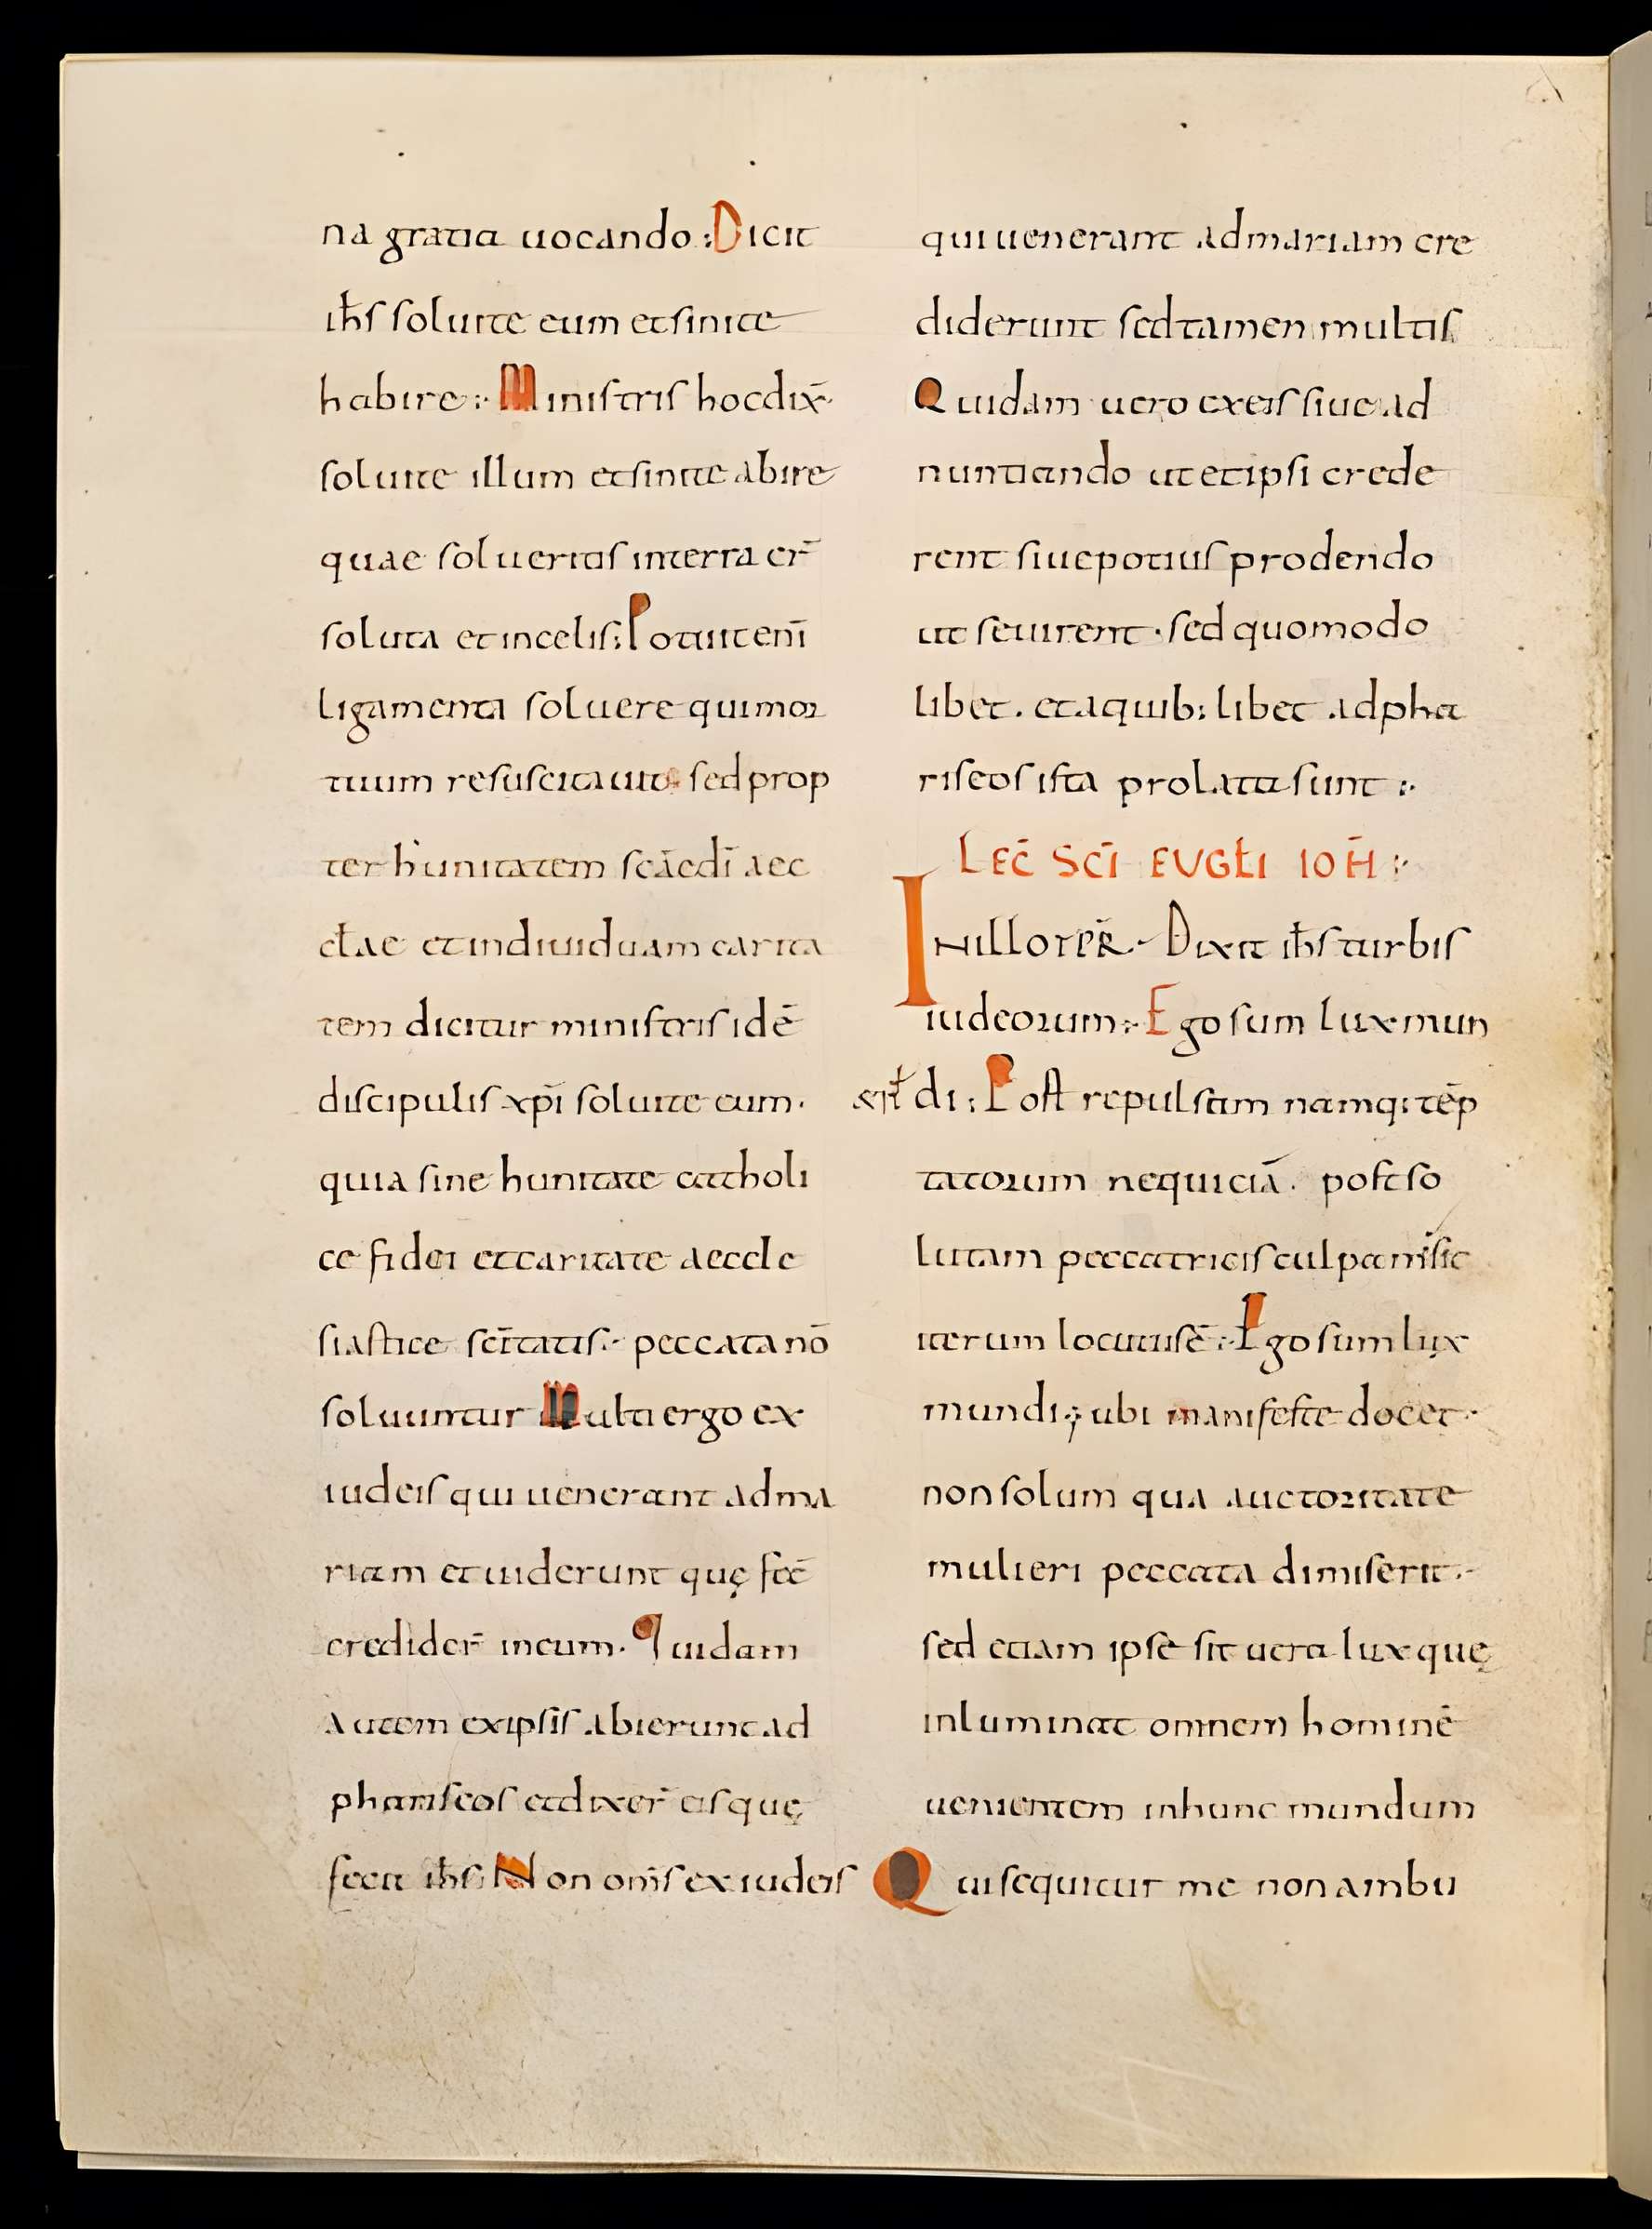 na gratia uocando :Dicit
ih̄s soluite eum et sinite
habire :· Ministris hoc dix̄·
soluite illum et sinite abire
quae solueritis in terra er̄
soluta et in celis; Potuit enī
ligamenta soluere qui mor
tuum resuscitauit · sed prop
ter hunitatem scāe dī aec
cƚae et indiuiduam carita
tem dicitur ministris idē
discipulis xp̄i soluite eum ·
quia sine hunitate catholi
ce fidei et caritate aeccle
siastice scītatis :· peccata nō
soluuntur Multi ergo ex
iudeis qui uenerant ad ma
riam et uiderunt quę fec̄
credider̄ in eum · Quidam
autem ex ipsis abierunt ad
phariseos et dixer̄ eis quę
fecit ih̄s; Non om̄s ex iudeis
qui uenerant ad mariam cre
diderunt sed tamen multis
Quidam uero ex eis siue ad
nuntiando ut et ipsi crede
rent siue potius prodendo
ut seuirent · sed quomodo
libet . et a quib; libet ad pha
riseos ista prolata sunt :·
LEC̄ SC̄I EVGƚI IOH̄ :·
IN ILLO TPR̄ · Dixit ih̄s turbis
iudeorum :· Ego sum lux mun
di ; Post repulsam namq; tēp
tatorum nequiciā · post so
lutam peccatricis culpam sic
iterum locutus ē :· Ego sum lux
mundi; ubi manifeste docet ·
non solum qua auctoritate
mulieri peccata dimiserit ·
sed etiam ipse sit uera lux quę
inluminat omnem hominē
uenientem in hunc mundum
Qui sequitur me non ambu